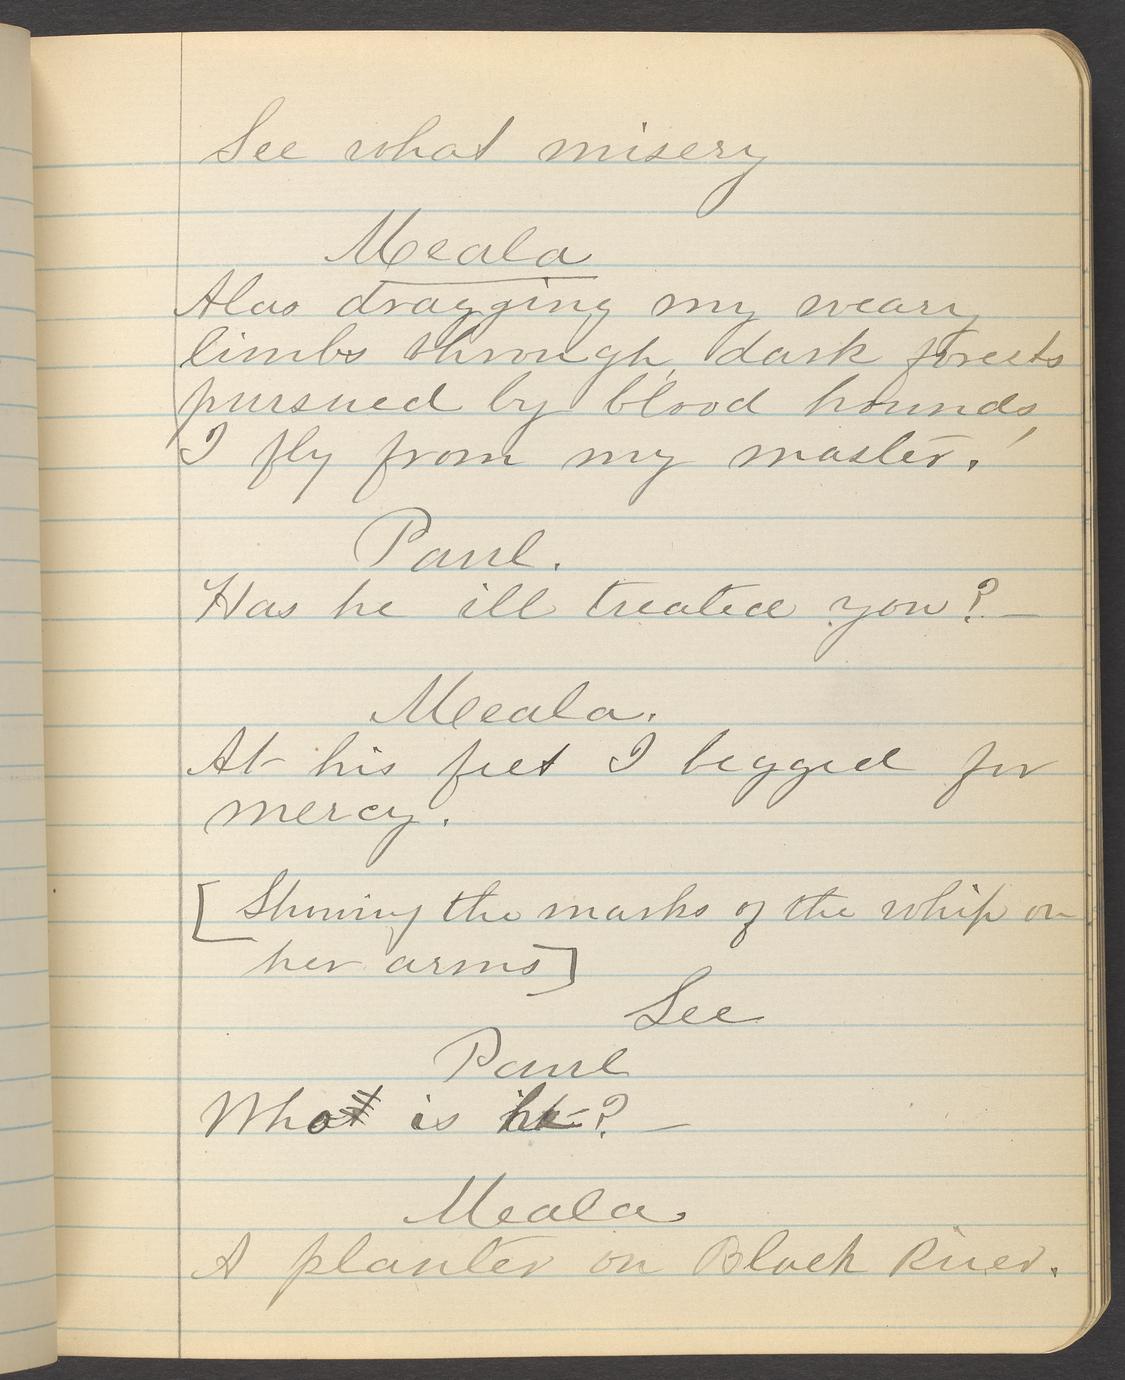 See what misery
Meala
Alas dragging my weary
limbs through dark forests
pursued by blood hounds,
I fly from my master!
Paul.
Has he ill treated you? —
Meala.
At his feet I begged for
mercy.
[Showing the marks of the whip on
her arms]
See
Paul
Who is he? —
Meala.
A planter on Black River.